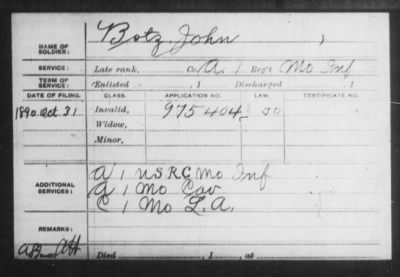 NAME OF SOLDIER: Botz, John
SERVICE: Late rank, Co. A, 1 Reg't Mo Inf
TERM OF SERVICE: Enlisted , 1 Discharged , 1
DATE OF FILING. CLASS. APPLICATION NO. LAW. CERTIFICATE NO.
1890 Oct 31 Invalid, 975404
Widow,
Minor,
ADDITIONAL SERVICES: A, 1 U.S.R.C. Mo Inf
A, 1 Mo Cav
C, 1 Mo L.A.
REMARKS:
Died , 1 , at